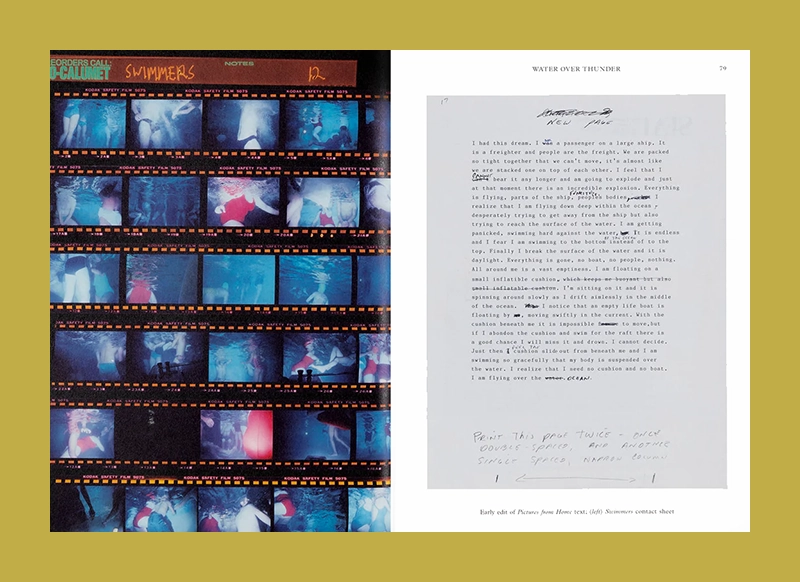 EORDERS CALL:
O-CALUMET
SWIMMERS
NOTES
12
KODAK SAFETY FILM 5075
KODAK SAFETY FILM 5075
KODAK SAFETY FILM 5075
KODAK SAFETY FILM 5075
KODAK SAFETY FILM 5075
KODAK SAFETY FILM 5075
WATER OVER THUNDER
79
17
NEW PAGE
I had this dream. I was a passenger on a large ship. It
is a freighter and people are the freight. We are packed
so tight together that we can't move, it's almost like
we are stacked one on top of each other. I feel that I
cannot bear it any longer and am going to explode and just
at that moment there is an incredible explosion. Everything
is flying, parts of the ship, people's bodies, I
realize that I am flying down deep within the ocean,
desperately trying to get away from the ship but also
trying to reach the surface of the water. I am getting
panicked, swimming hard against the water, It is endless
and I fear I am swimming to the bottom instead of to the
top. Finally I break the surface of the water and it is
daylight. Everything is gone, no boat, no people, nothing.
All around me is a vast emptiness, I am floating on a
small inflatable cushion, which keeps me buoyant but also
small inflatable cushion. I'm sitting on it and it is
spinning around slowly as I drift aimlessly in the middle
of the ocean. I notice that an empty life boat is
floating by, moving swiftly in the current. With the
cushion beneath me it is impossible to move, but
if I abandon the cushion and swim for the raft there is
a good chance I will miss it and drown. I cannot decide.
Just then I feel the cushion slide out from beneath me and I am
swimming so gracefully that my body is suspended over
the water. I realize that I need no cushion and no boat.
I am flying over the OCEAN.
PRINT THIS PAGE TWICE - ONCE
DOUBLE-SPACED, AND ANOTHER
SINGLE SPACED, NARROW COLUMN
Early edit of Pictures from Home text; (left) Swimmers contact sheet